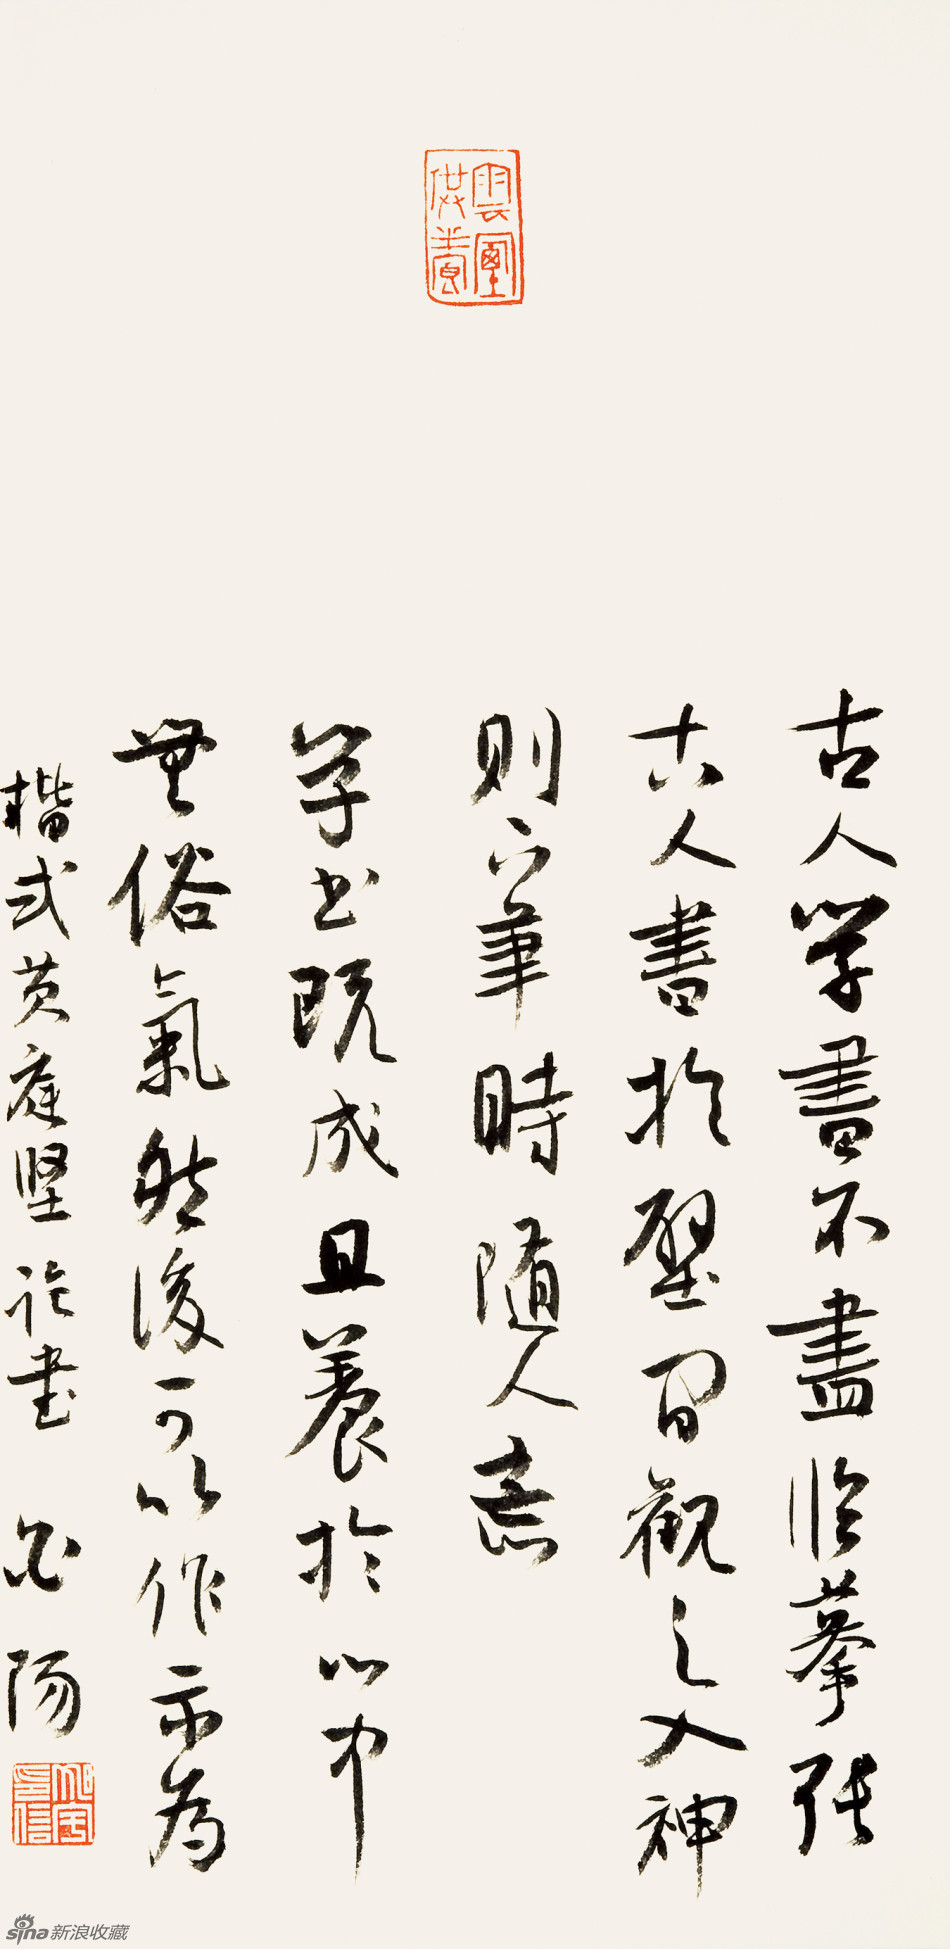 雲供養
古人學書不盡臨摹張
古人書於壁間觀之入神
則下筆時隨人意
學書既成且養於心中
無俗氣然後可以作示為
楷式黃庭堅論書 陽
sina新浪收藏